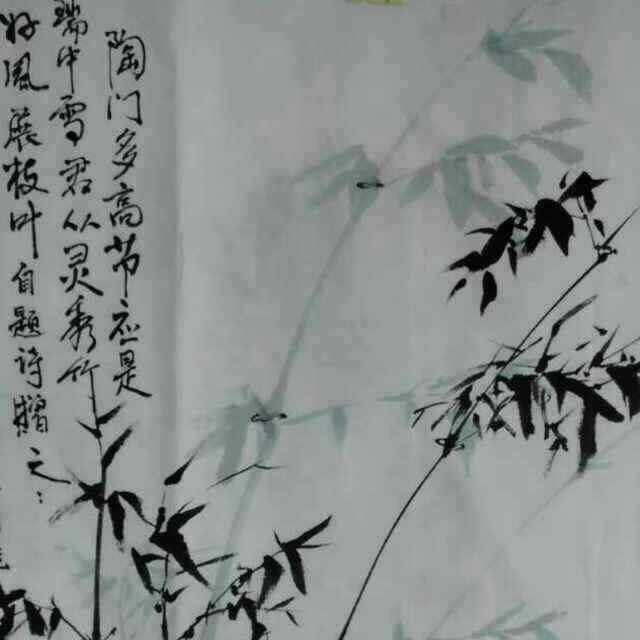 阖门多高节应是
端中雪君似灵秀竹
好风展枝叶自题诗赠之